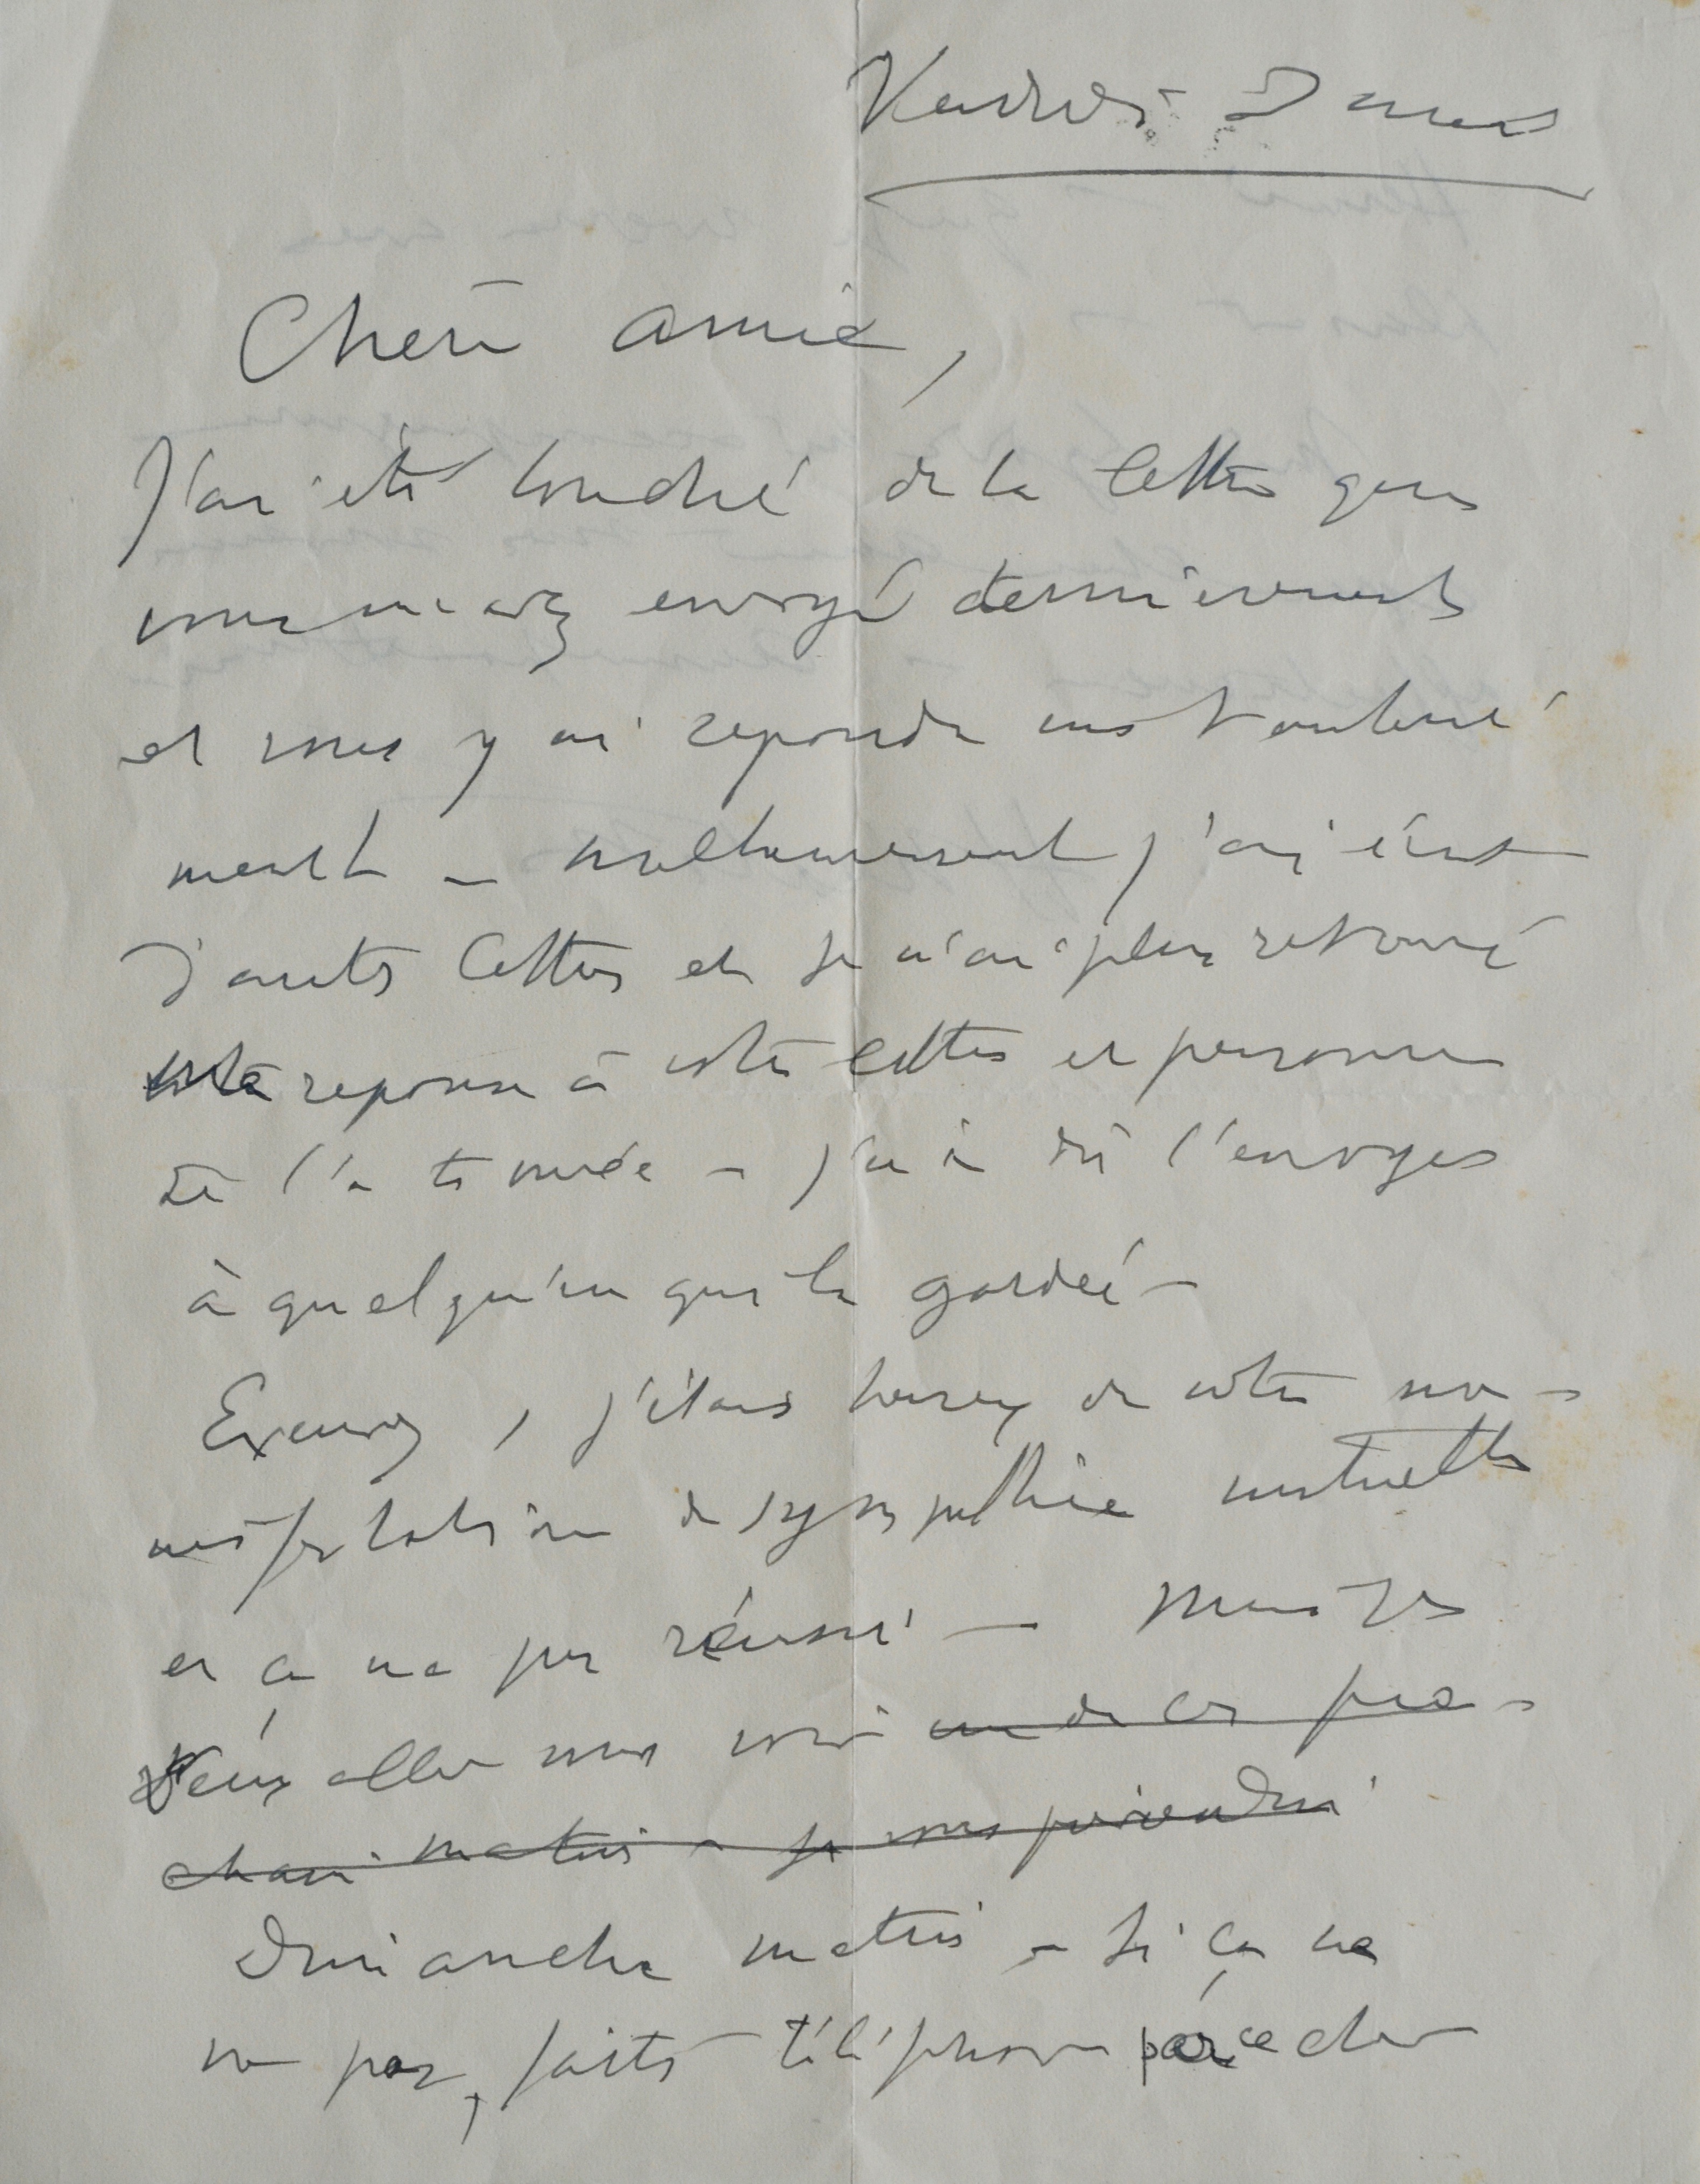 Vendredi 2 mars
Chère amie,
J'ai été touché de la lettre que
vous m'avez envoyé dernièrement
et vous y ai repondu instantané
ment _ malheureusement j'ai écrit
d'autres lettres et je n'ai plus retrouvé
reponse à votre lettre et personne
ne l'a trouvée – j'ai dû l'envoyer
à quelqu'un qui l'a gardée –
Excusez, j'étais heureux de cette ma-
nifestation de sympathie mutuelle
et ça n'a pas réussi — Mais je
veux aller vous voir un de ces pro-
chain matins – je vous préviendrai
Dimanche matin – si ça ne
va pas, faites téléphoner par ce cher